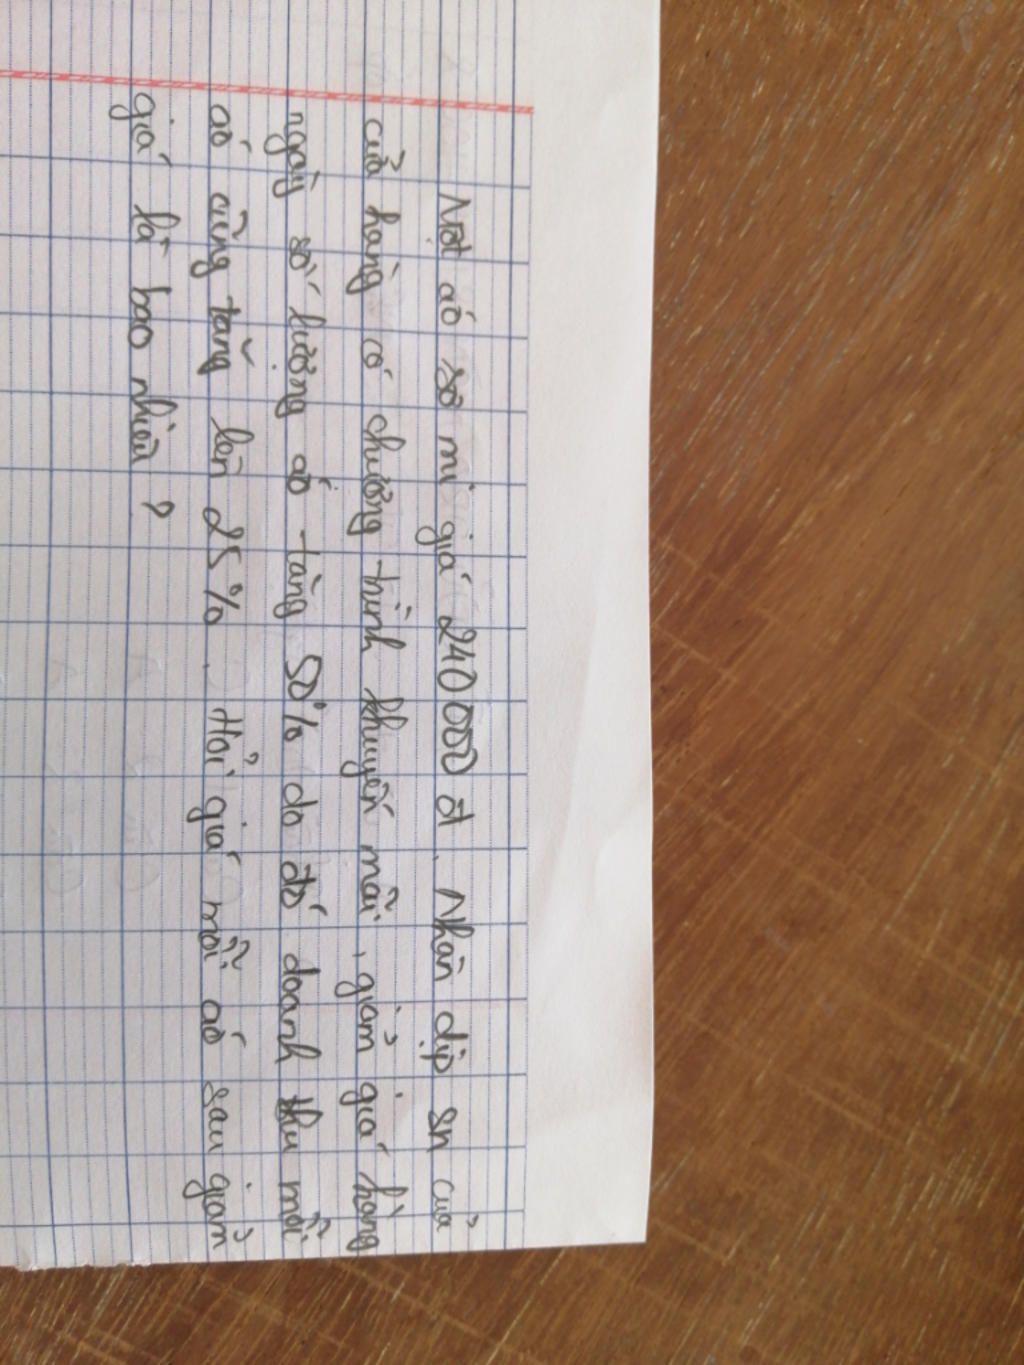 Một áo sơ mi giá 240 000 đ. Nhân dịp sn của
cửa hàng có chương trình khuyến mãi, giảm giá hàng
ngày số lượng áo tăng 50% do đó doanh thu mỗi
áo cũng tăng lên 25%. Hỏi giá mỗi áo sau giảm
giá là bao nhiêu ?